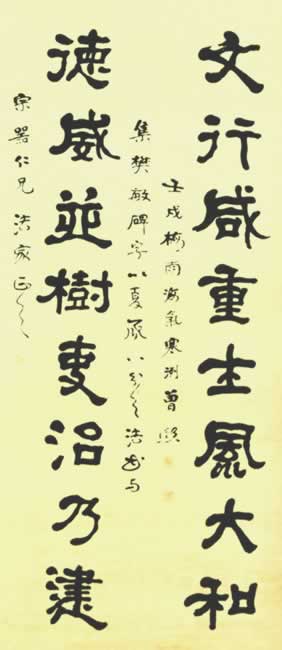 文行咸重士風大和
壬戌梅雨海氣寒冽曾熙
集樊敏碑字以夏承八分之法書与
徳威並樹吏治乃建
宗器仁兄法家正之